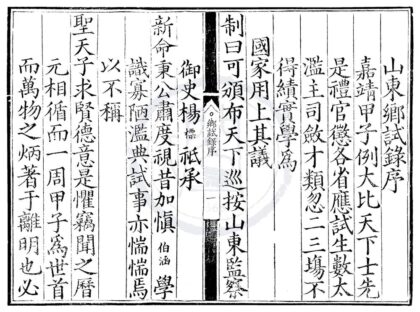 山東鄉試錄序
嘉靖甲子例大比天下士先
是禮官懲各省應試生數太
濫主司斂才類忽二三場不
得績實學爲
國家用上其議
制曰可頒布天下巡按山東監察
鄉試錄序
御史楊 標 祇承
新命秉公肅度視昔加愼 伯涵 學
識寡陋濫典試事亦惴惴焉
以不稱
聖天子求賢德意是懼竊聞之曆
元相循而一周甲子爲世首
而萬物之炳著于離明也必